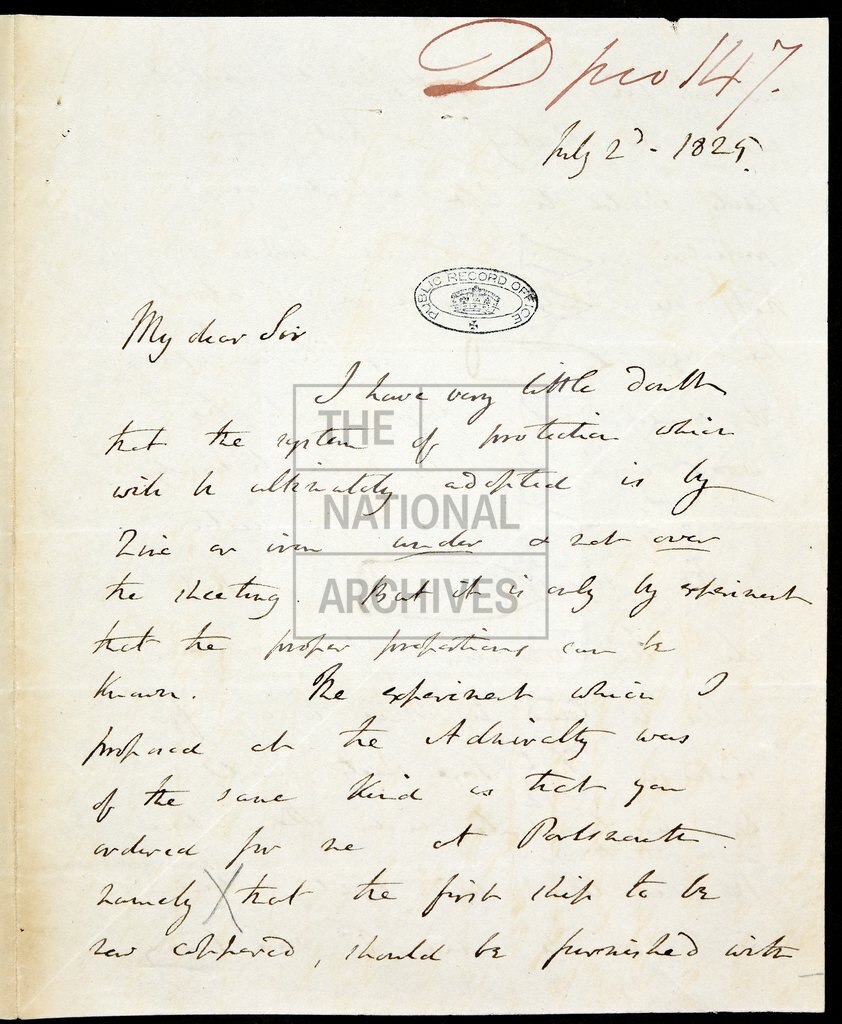 D pro 147.
July 2d - 1825.
PUBLIC RECORD OFFICE
My dear Sir
I have very little doubt
that the system of protection which
will be ultimately adopted is by
Zinc or iron under & not over
the sheeting. But it is only by experiment
that the proper proportions can be
known. The experiment which I
proposed at the Admiralty was
of the same kind as that you
ordered for me at Portsmouth
namely X that the first ship to be
new coppered, should be furnished with
THE
NATIONAL
ARCHIVES